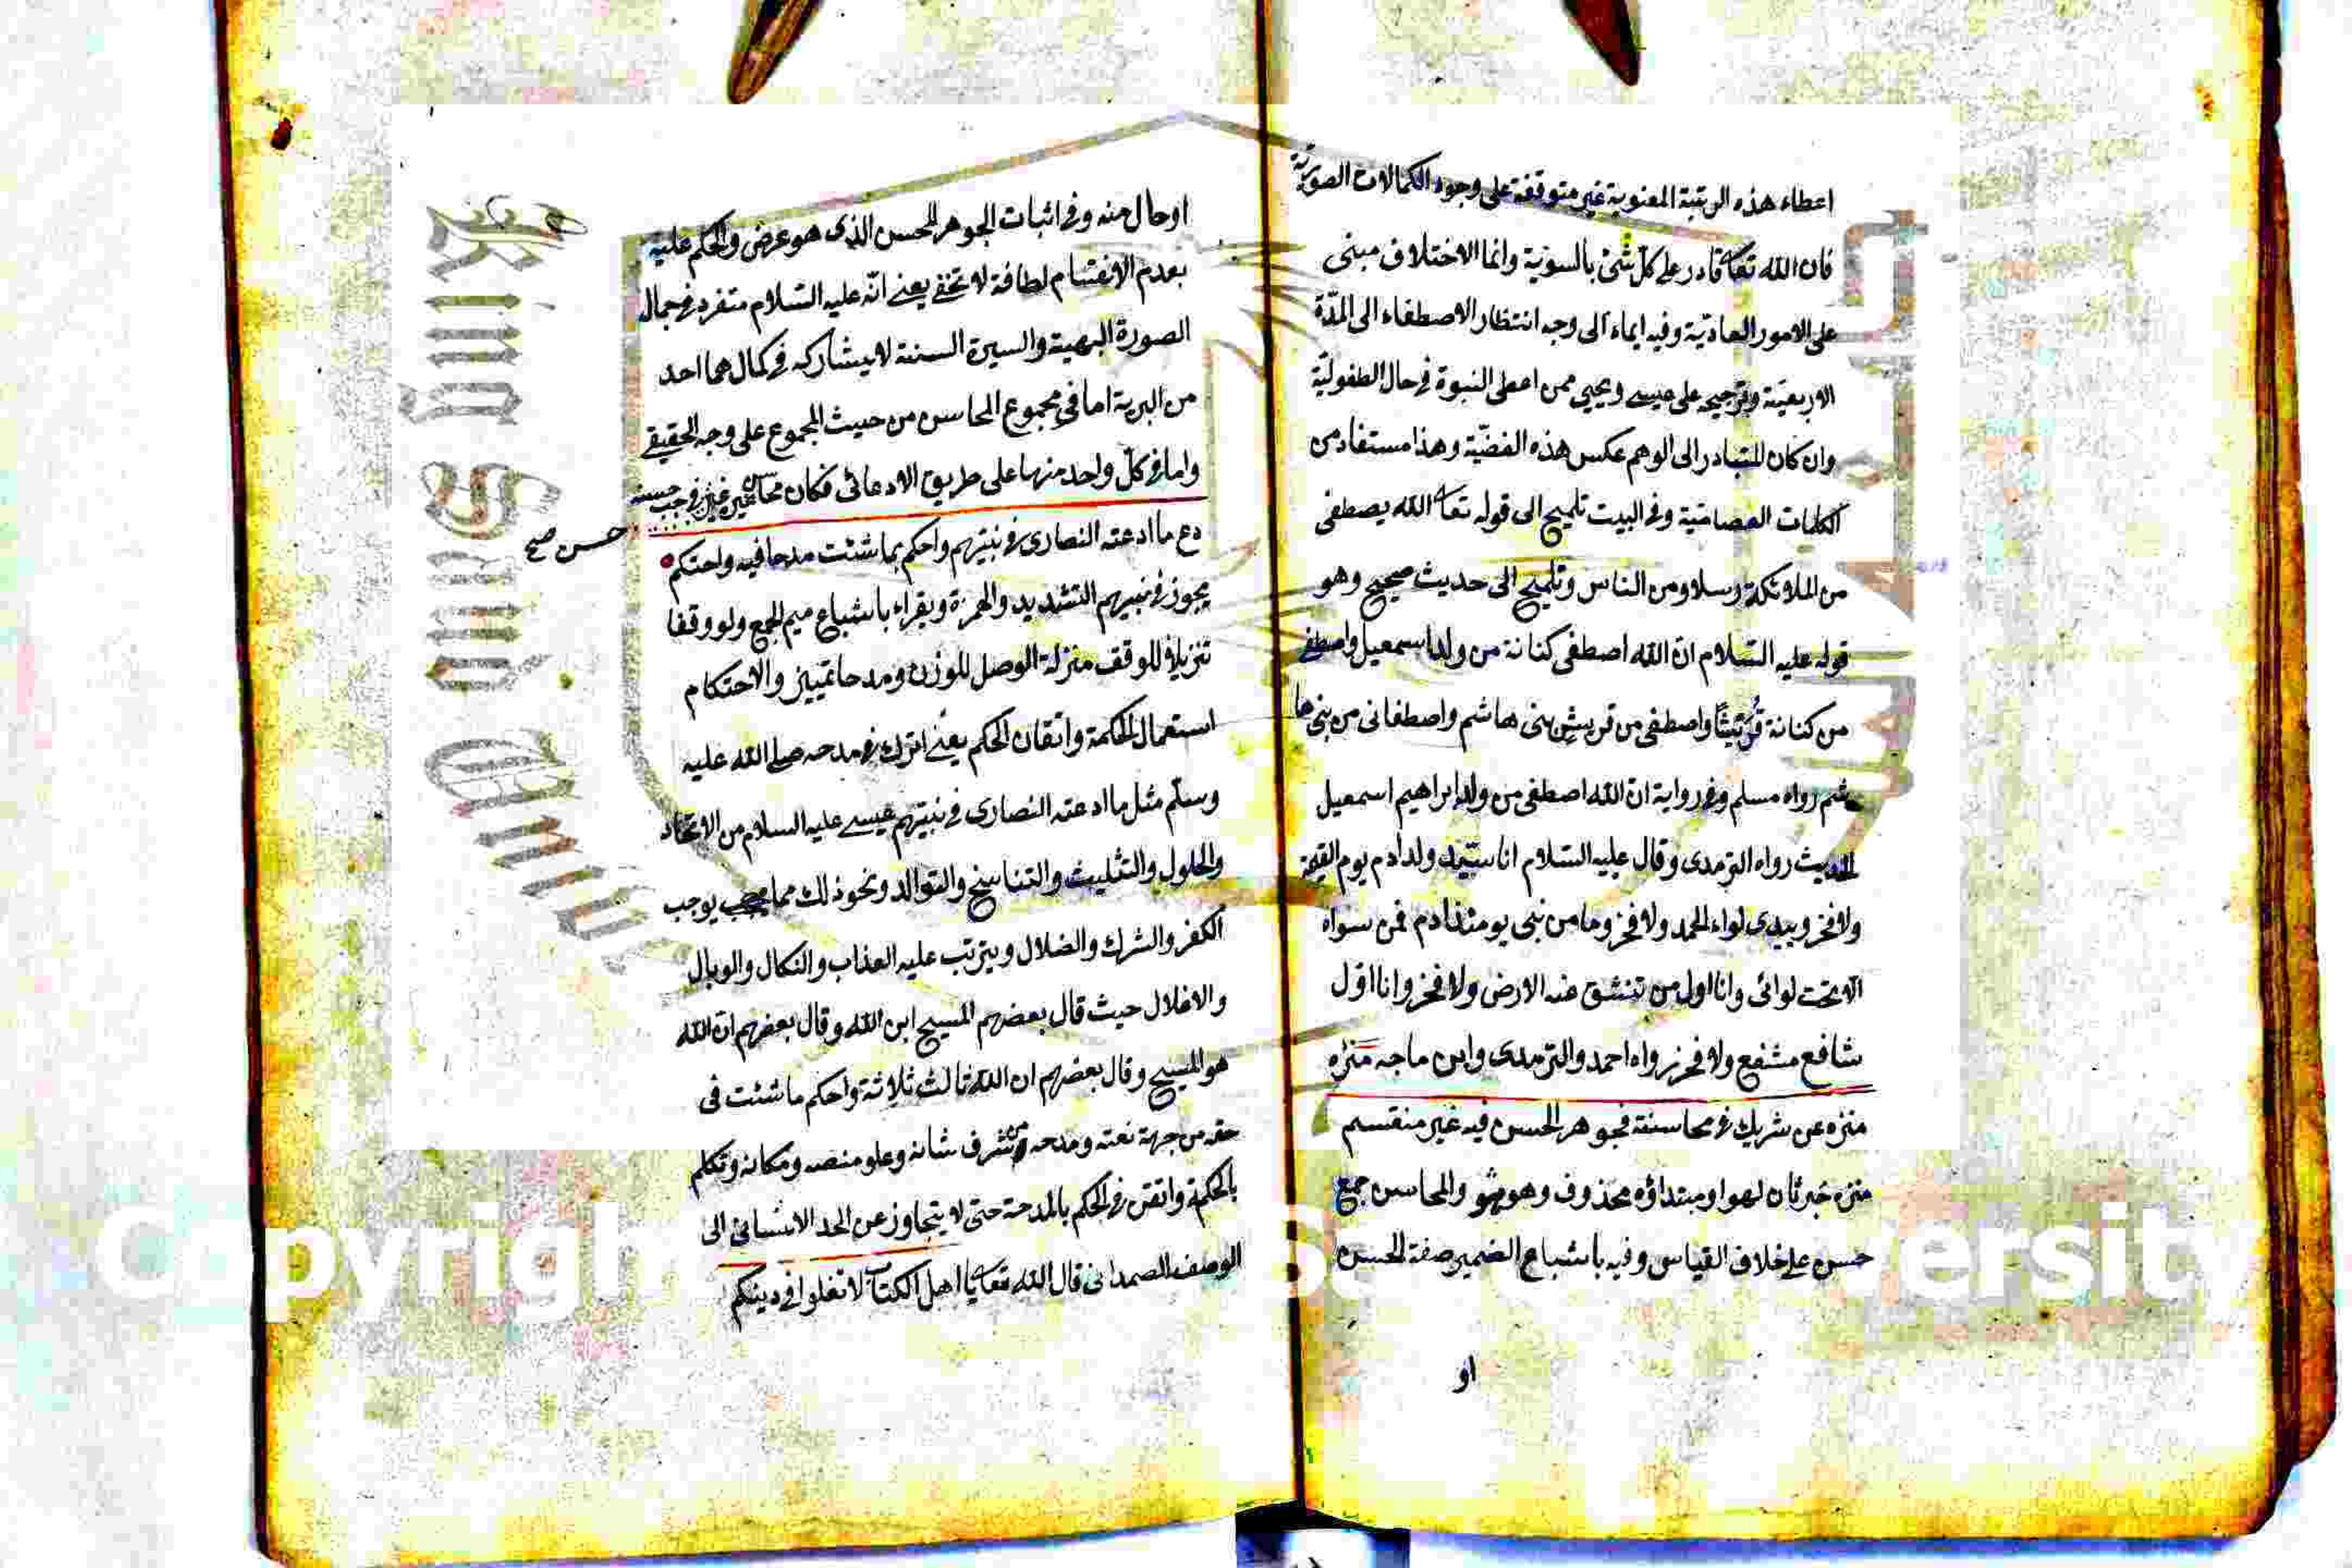 اعطاء هذه الرتبة المعنوية غير متوقفة على وجود الكمالات الصورية
فان الله تعا قادر على كل شئ بالسوية وانما الاختلاف مبنى
على الامور العادية وفيه ايماء الى وجه انتظار الاصطفاء الى المدّة
الاربعينة وترجيحه على عيسى ويحيى ممن اعطى النبوة فى حال الطفوليّة
وان كان المتبادر الى الوهم عكس هذه القضيّة وهذا مستفاد من
الكلمات العصامية وفى البيت تلميح الى قوله تعا الله يصطفى
من الملائكة رسلا ومن الناس وتلميح الى حديث صحيح وهو
قوله عليه السلام ان الله اصطفى كنانة من ولد اسمعيل واصطفى
من كنانة قريشا واصطفى من قريش بنى هاشم واصطفانى من بنى ها
شم رواه مسلم وفى رواية ان الله اصطفى من ولد ابراهيم اسمعيل
الحديث رواه الترمدى وقال عليه السلام انا سيّد ولد ادم يوم القيمة
ولا فخر وبيدى لواء الحمد ولا فخر وما من نبى يومئذ ادم فمن سواه
الا تحت لوائى وانا اول من تنشق عنه الارض ولا فخر وانا اوّل
شافع مشفع ولا فخر رواه احمد والترمدى وابن ماجه منزه
منزه عن شريك فى محاسنه فجوهر الحسن فيه غير منقسم
منزه خبر ثان لهو او مبتداؤه محذوف وهو هو والمحاسن جمع
حسن على خلاف القياس وفيه باشباع الضمير صفة الحسن
او
او حال منه وفى اثبات الجوهر للحسن الذى هو عرض والحكم عليه
بعدم الانقسام لطافة لا تخفى يعنى انّه عليه السّلام متفرد فى جمال
الصورة البهية والسيرة السنية لا يشاركه فى كمالهما احد
من البرية اما فى مجموع المحاسن من حيث المجموع على وجه الحقيقى
واما فى كلّ واحد منها على طريق الادعائى فكان محاسن غيره فى جنب حسنه
حسن صح
دع ما ادعته النصارى فى نبيّهم واحكم بما شئت مدحا فيه واحتكم
يجوز فى نبيهم التشديد والهمزة ويقراء باشباع ميم الجمع ولو وقفا
تنزيلا للوقف منزلة الوصل للوزن ومدحا تمييز والاحتكام
استعمال الحكمة واتقان الحكم يعنى اترك فى مدحه صلى الله عليه
وسلّم مثل ما ادعته النصارى فى نبيّهم عيسى عليه السلام من الاتحاد
والحلول والتثليث والتناسخ والتوالد ونحو ذلك مما يوجب
الكفر والشرك والضلال ويترتب عليه العذاب والنكال والوبال
والاغلال حيث قال بعضهم المسيح ابن الله وقال بعضهم ان الله
هو المسيح وقال بعضهم ان الله ثالث ثلاثة واحكم ما شئت فى
حقه من جهة نعته ومدحه من شرف شانه وعلو منصبه ومكانه وتكلم
بالحكمة واتقن فى الحكم بالمدحة حتى لا يتجاوز عن الحد الانسانى الى
الوصف الصمدانى قال الله تعا يا اهل الكتاب لا تغلوا فى دينكم